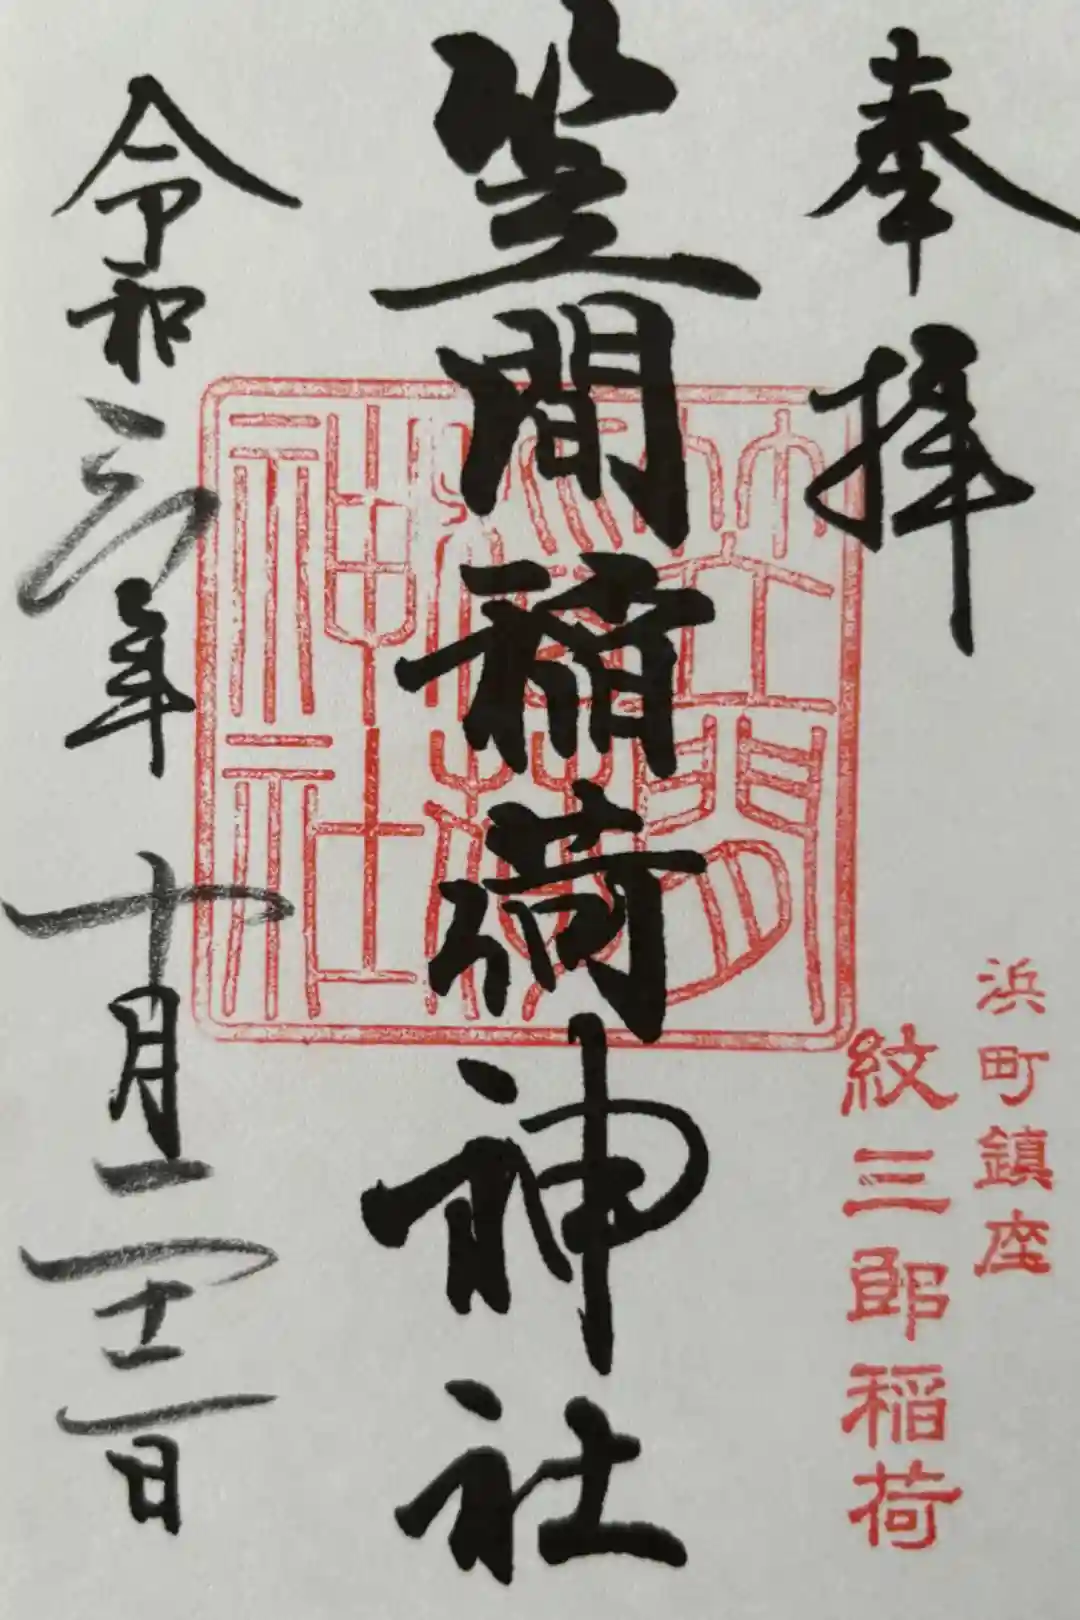 奉拝
浜町鎮座
紋三郎稲荷
笠間稲荷神社
笠間
稲荷
神社
令和六年十月二十二日